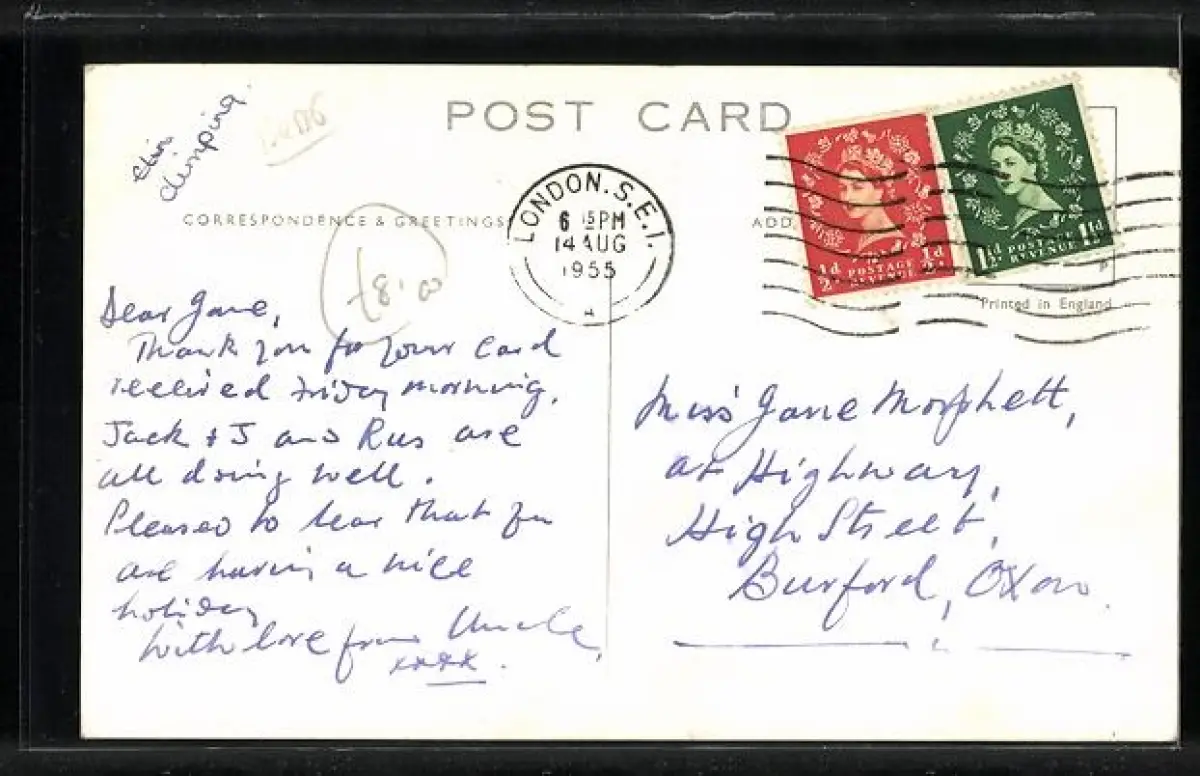 POST CARD
chipping
CORRESPONDENCE & GREETINGS
ADD
LONDON. S.E.1.
6 15 PM
14 AUG
1955
A
½d POSTAGE ½d
REVENUE
1½d POSTAGE 1½d
REVENUE
Printed in England
£8.00
Dear Jane,
Thank you for your card
received Friday morning.
Jack & J and Rus are
all doing well.
Pleased to hear that you
are having a nice
holiday
With love from Uncle,
xxxx.
Miss Jane Morphett,
at Highway,
High Street,
Burford, Oxon.